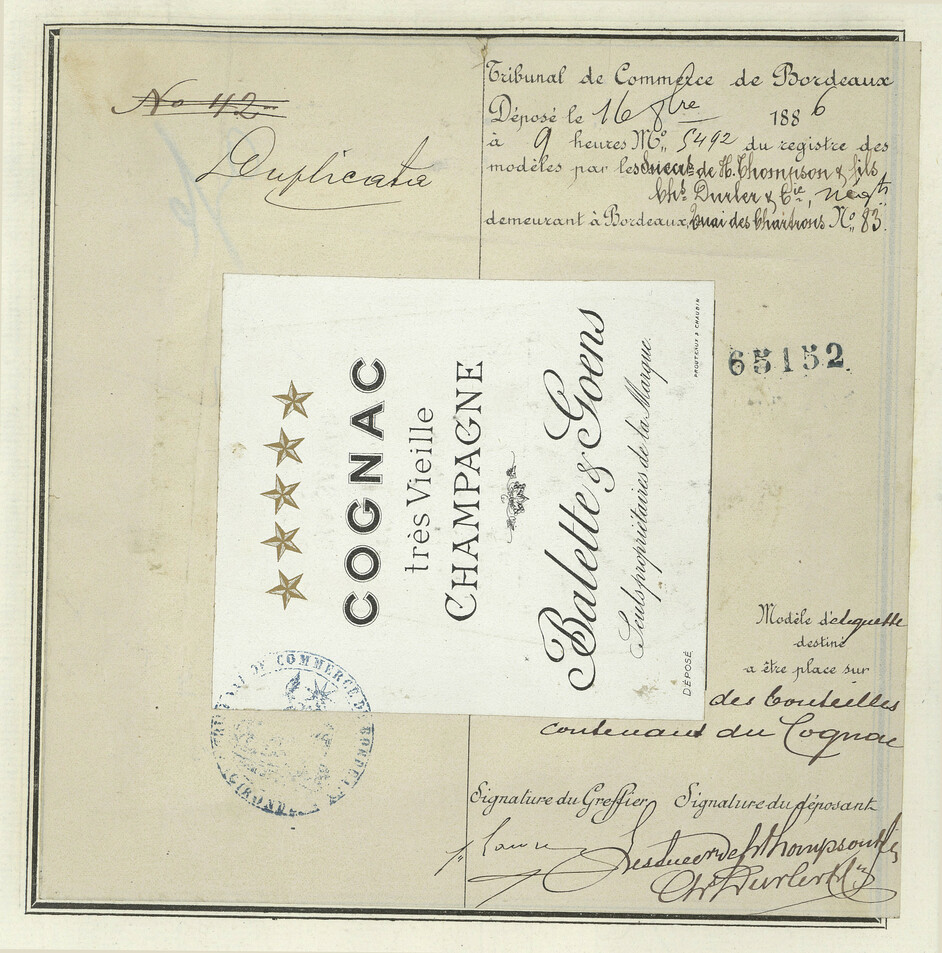 No 42
Duplicata
Tribunal de Commerce de Bordeaux
Déposé le 16 8bre 1886
à 9 heures No. 5492 du registre des
modèles par les Succrs de H. Thompson & fils
Chs Durler & Cie, negts
demeurant à Bordeaux, Quai des Chartrons No. 83.
COGNAC
très Vieille
CHAMPAGNE
Balette & Goens
Seuls propriétaires de la Marque.
DÉPOSÉ
PROUTEAUX & CHAUBIN
65152
Modèle d'etiquette
destiné
a être place sur
des bouteilles
contenant du Cognac
TRIBUNAL DE COMMERCE DE BORDEAUX
(GIRONDE)
Signature du Greffier Signature du déposant
Les Succrs de H Thompson & fils
Chs Durler & Cie